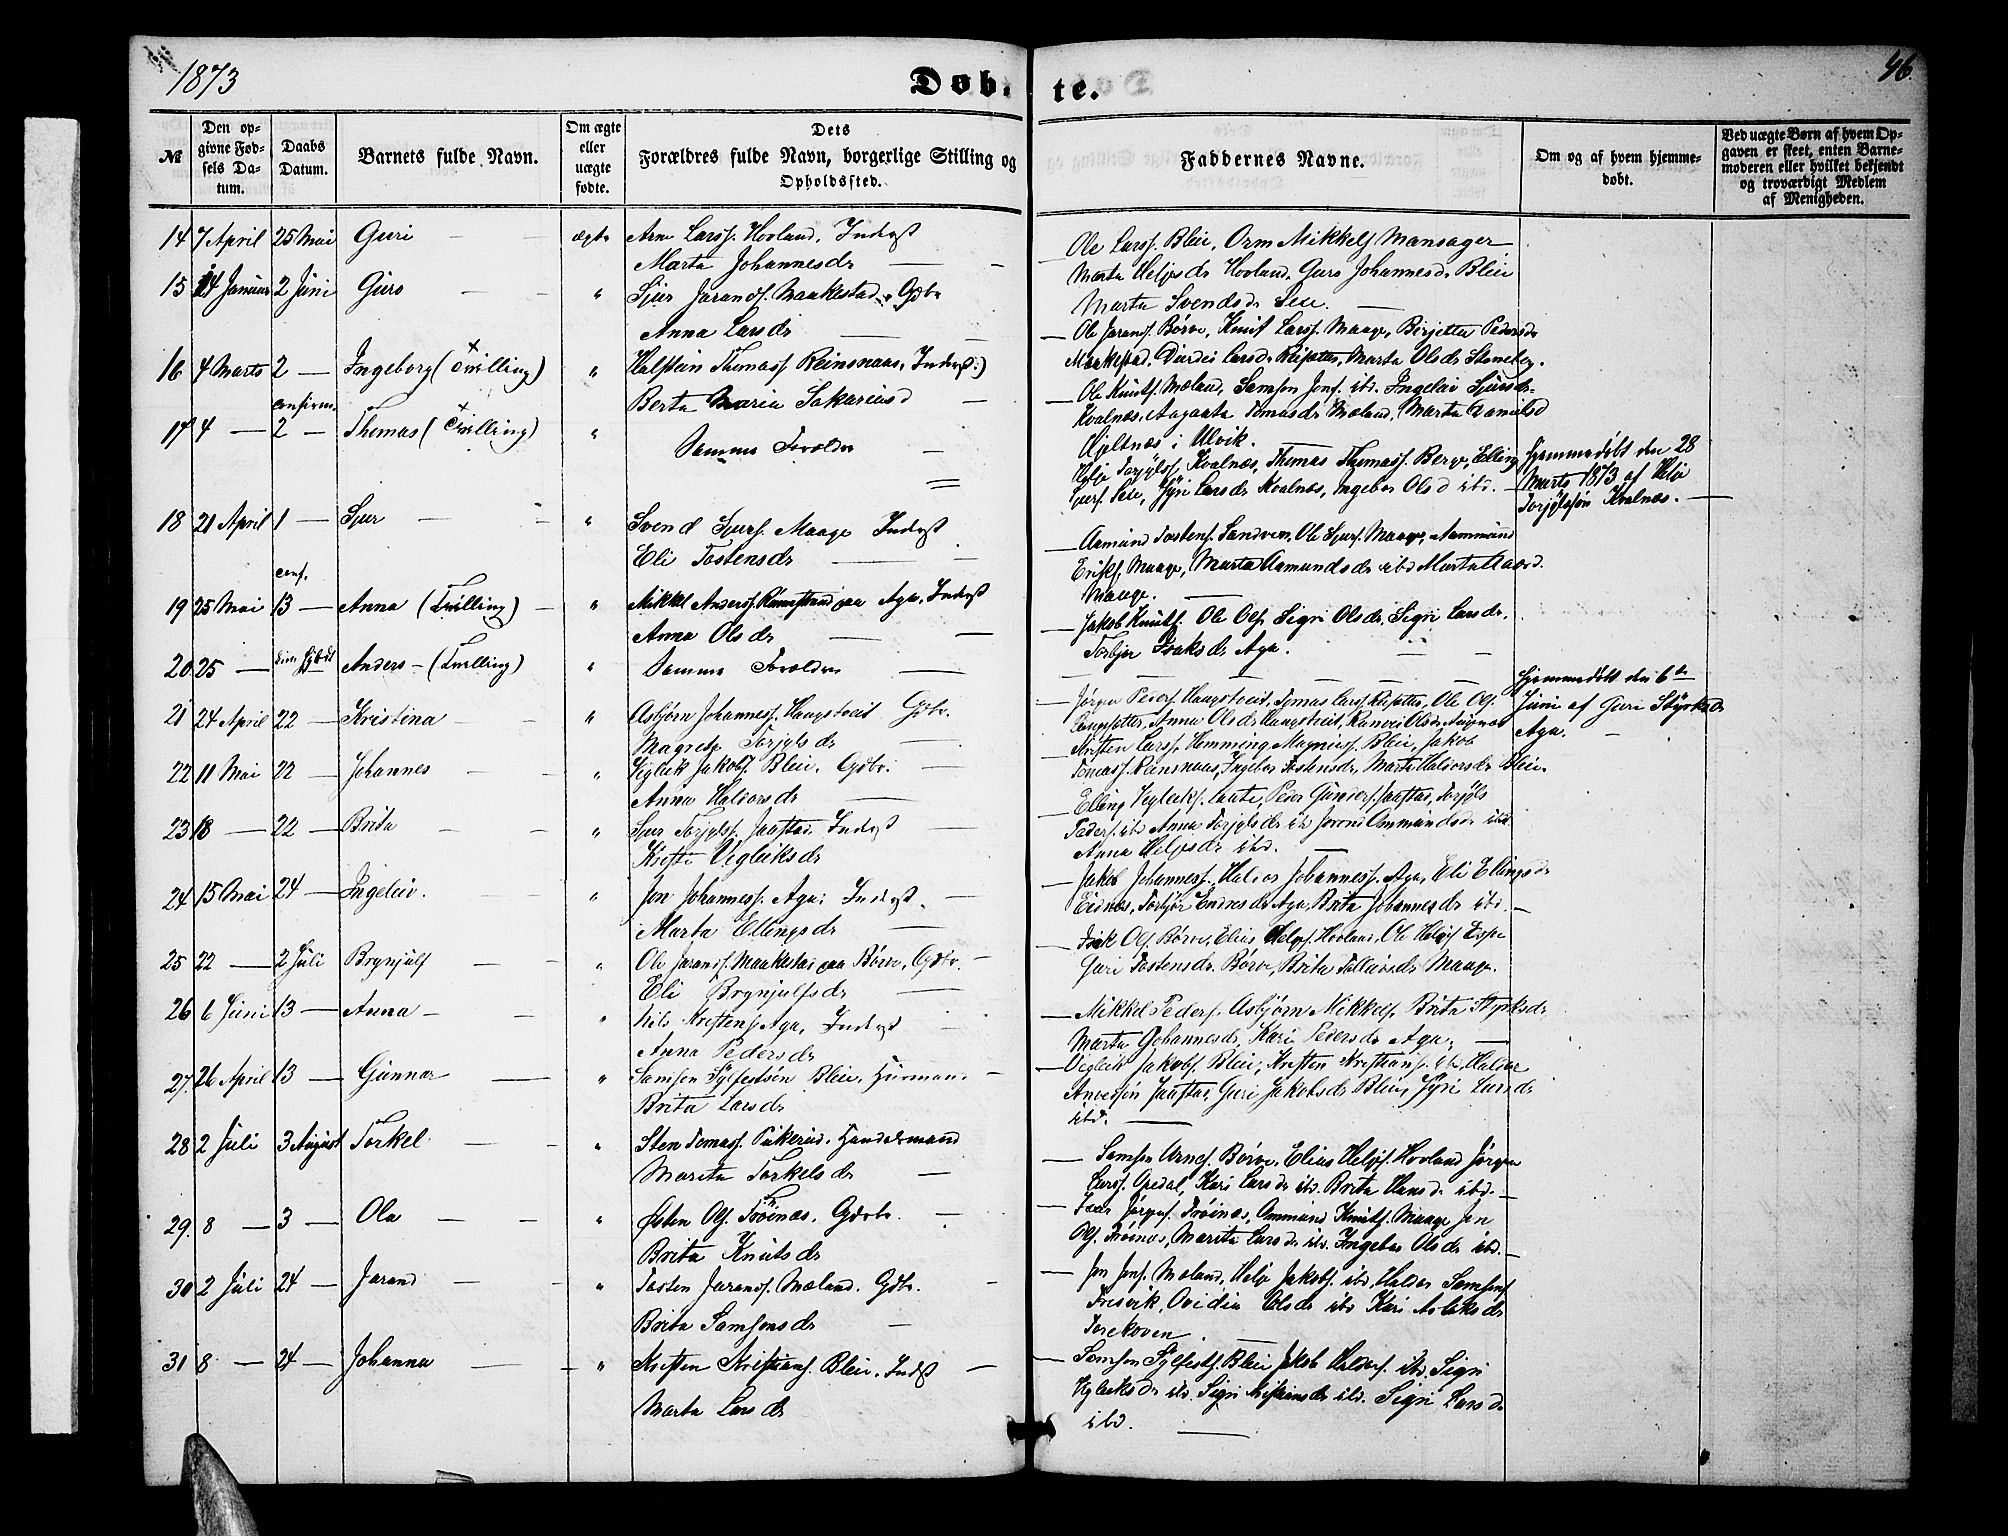 1873
Døbte.
46.
№
Den opgivne Fødsels Datum.
Daabs Datum.
Barnets fulde Navn.
Om ægte eller uægte fødte.
Dets Forældres fulde Navn, borgerlige Stilling og Opholdssted.
Faddernes Navne.
Om og af hvem hjemmedøbt.
Ved uægte Børn af hvem Opgaven er skeet, enten Barnemoderen eller hvilket bekjendt og troværdigt Medlem af Menigheden.
14 7 April 25 Mai Guri — ægte Arne Larss. Hovland, Inderst
Marta Johannesdr —
Ole Larss. Bleie, Orm Mikkels Mansager
Marta Heljesdr Hovland, Guro Johannesdr Bleie
Marta Svendsdr Sexe. —
15 14 Januar 2 Juni Guro — " Sjur Jarands. Maakestad, Gdbr
Anna Larsdr —
— Ole Jarands. Børve, Knut Larss. Maage, Birjetta Pedersdr
Maakestad, Durdei Larsdr Reisæter, Marta Olsdr Staneberg.
16 4 Marts 2 — Ingeborg (Tvilling) " Halstein Thomass. Reinsnaas, Inderst
Berta Maria Sakariasd —
— Ole Knuts. Mæland, Samson Jons. ibd. Ingelei Sjursdr
Kvalnæs, Aagaata Tomasdr Mæland, Marta Danielsd
Hjeltnæs i Ulvik.
confirm.
17 4 — 2 — Thomas (Tvilling) " Samme Forældre —
Helje Torjylss. Kvalnæs, Thomas Thomass. Berge, Elling
Sjurs. Sexe, Jyri Larsdr Kvalnæs, Ingebor Olsd ibd. —
Hjemmedøbt den 28
Marts 1873 af Helje
Torjylssøn Kvalnæs. —
18 21 April 1 — Sjur — " Svend Sjurs. Maage Inderst
Eli Tostensdr —
— Aamund Tostens. Sandven, Ole Sjurs. Maage, Aammund
Eriks. Maage, Marta Aamundsdr ibd Marta
Maage. —
conf.
19 25 Mai 13 — Anna (Tvilling) — " Mikkel Anderss. paa Aga, Inderst
Anna Olsdr —
— Jakob Knuts. Ole Ols. Sigri Olsdr, Sigri Larsdr
Torbjør Isaksdr Aga.
20 25 — Anders — (Tvilling) " Samme Forældre —
Hjemmedøbt den 6te
Juni af Guri Styrksdr
Aga. —
21 24 April 22 — Kristina — " Asbjørn Johanness. Haugstveit Gdbr.
Magrete Torjylsdr —
— Jørgen Peders. Haugstveit, Tomas Larss. Reisæter, Ole Ols.
Anna Olsdr Haugstveit, Ranvei Olsdr
22 11 Mai 22 — Johannes — " Vigleik Jakobs. Bleie, Gdbr. —
Anna Haldorsdr —
Kristen Larss. Hemming Magnus. Bleie, Jakob
Tomass. Reinsnaas, Ingebor Tostensdr, Marta Haldorsdr Bleie.
23 18 — 22 — Brita — " Sjur Torjyls. Jaastad, Inderst —
Kristi Vigleiksdr
— Elling Vigleiks. Peder Gunders. Jaastad, Torjyls
Peders. ibd Anna Torjylsdr ibd Joron Ommundsdr ibd
Anna Heljesdr ibd. —
24 15 Mai 24 — Ingeleiv. " Jon Johanness. Aga, Inderst. —
Marta Ellingsdr —
— Jakob Johanness. Haldor Johanness. Aga, Eli Ellingsdr
Eidnæs, Torbjør Endresdr Aga, Brita Johannesdr ibd. —
25 22 — 2 Juli Brynjulf — " Ole Jarands. Maakestad paa Børve, Gdbr. —
Eli Brynjulfsdr —
— Isak Ols. Børve, Elias Heljes. Hovland, Ole Heljes. Espe
Guri Tostensdr. Børve, Brita Tolleivsdr Maage.
26 6 Juni 13 — Anna — " Nils Kristens. Aga, Inderst —
Anna Pedersdr
— Mikkel Peders. Asbjørn Mikkels. Brita Styrksdr
Marta Johannesdr, Kari Pedersdr Aga; —
27. 26 April 13 — Gunnar — " Samson Sylfestsøn Bleie, Husmand —
Brita Larsdr
— Vigleik Jakobs. Bleie, Kristen Kristians. ibd, Haldor
Jaastad, Guri Jakobsdr Bleie, Jyri Larsdr
ibd. —
28 2 Juli 3 August Torkel — " Sten Tomass. Handelsmand
Marita Torkelsdr —
— Samson Arnes. Børve, Elias Heljes. Hovland Jørgen
Larss. Opedal, Kari Larsdr ibd. Brita Hansdr ibd. —
29. 8 — 3 — Ola — " Østen Ols. Trøinæs. Gdbr. —
Brita Knutsdr
— Ivar Jørgens. Trøinæs, Ommund Knuts. Maage Jon
Ols. Trøinæs, Marita Larsdr ibd. Ingebor Olsdr ibd. —
30 2 Juli 24 — Jarand — " Tosten Jarands. Mæland. Gdbr. —
Brita Samsonsdr —
— Jon Jons. Mæland, Helje Jakobs. ibd, Haldor Samsons.
Tresvik, Ovidia Olsdr ibd Kari Aslaksdr
Torekoven. —
31 8 — 24 — Johanna — " Kristen Kristians. Bleie, Indst —
Marta Larsdr
— Samson Sylfests. Bleie Jakob Haldors. ibd Sigri
Vigleiksdr ibd. Sigri Kristiansdr ibd. Sigri Larsdr
ibd. —